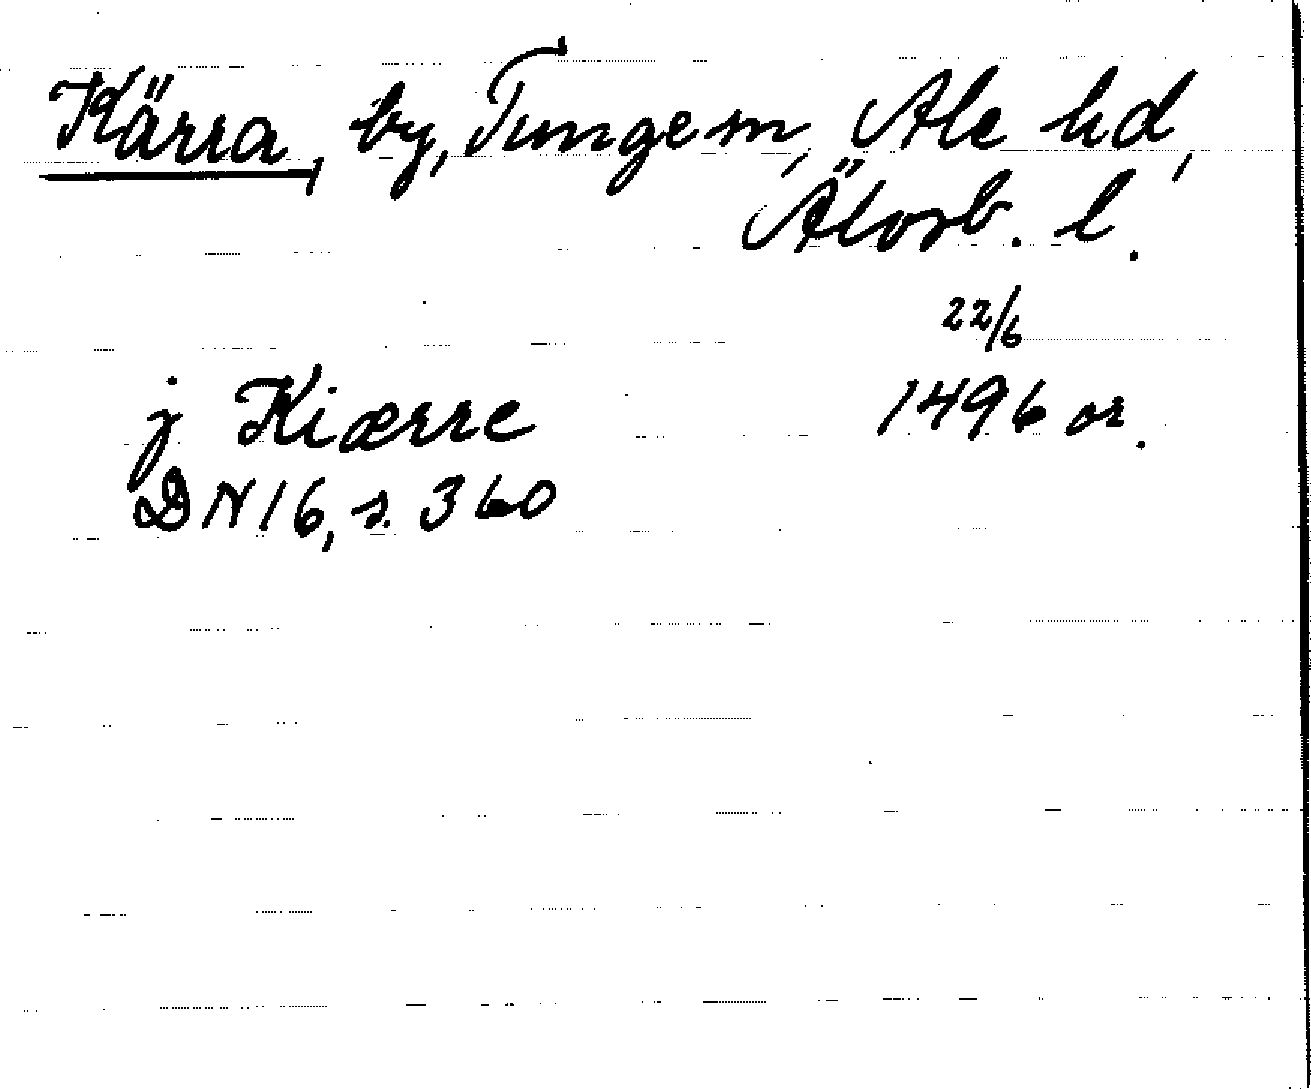 Kärra, by, Tunge sn, Ale hd,
Älvsb. l.
22/6
j Kiærre 1496 or.
DN 16, s. 360